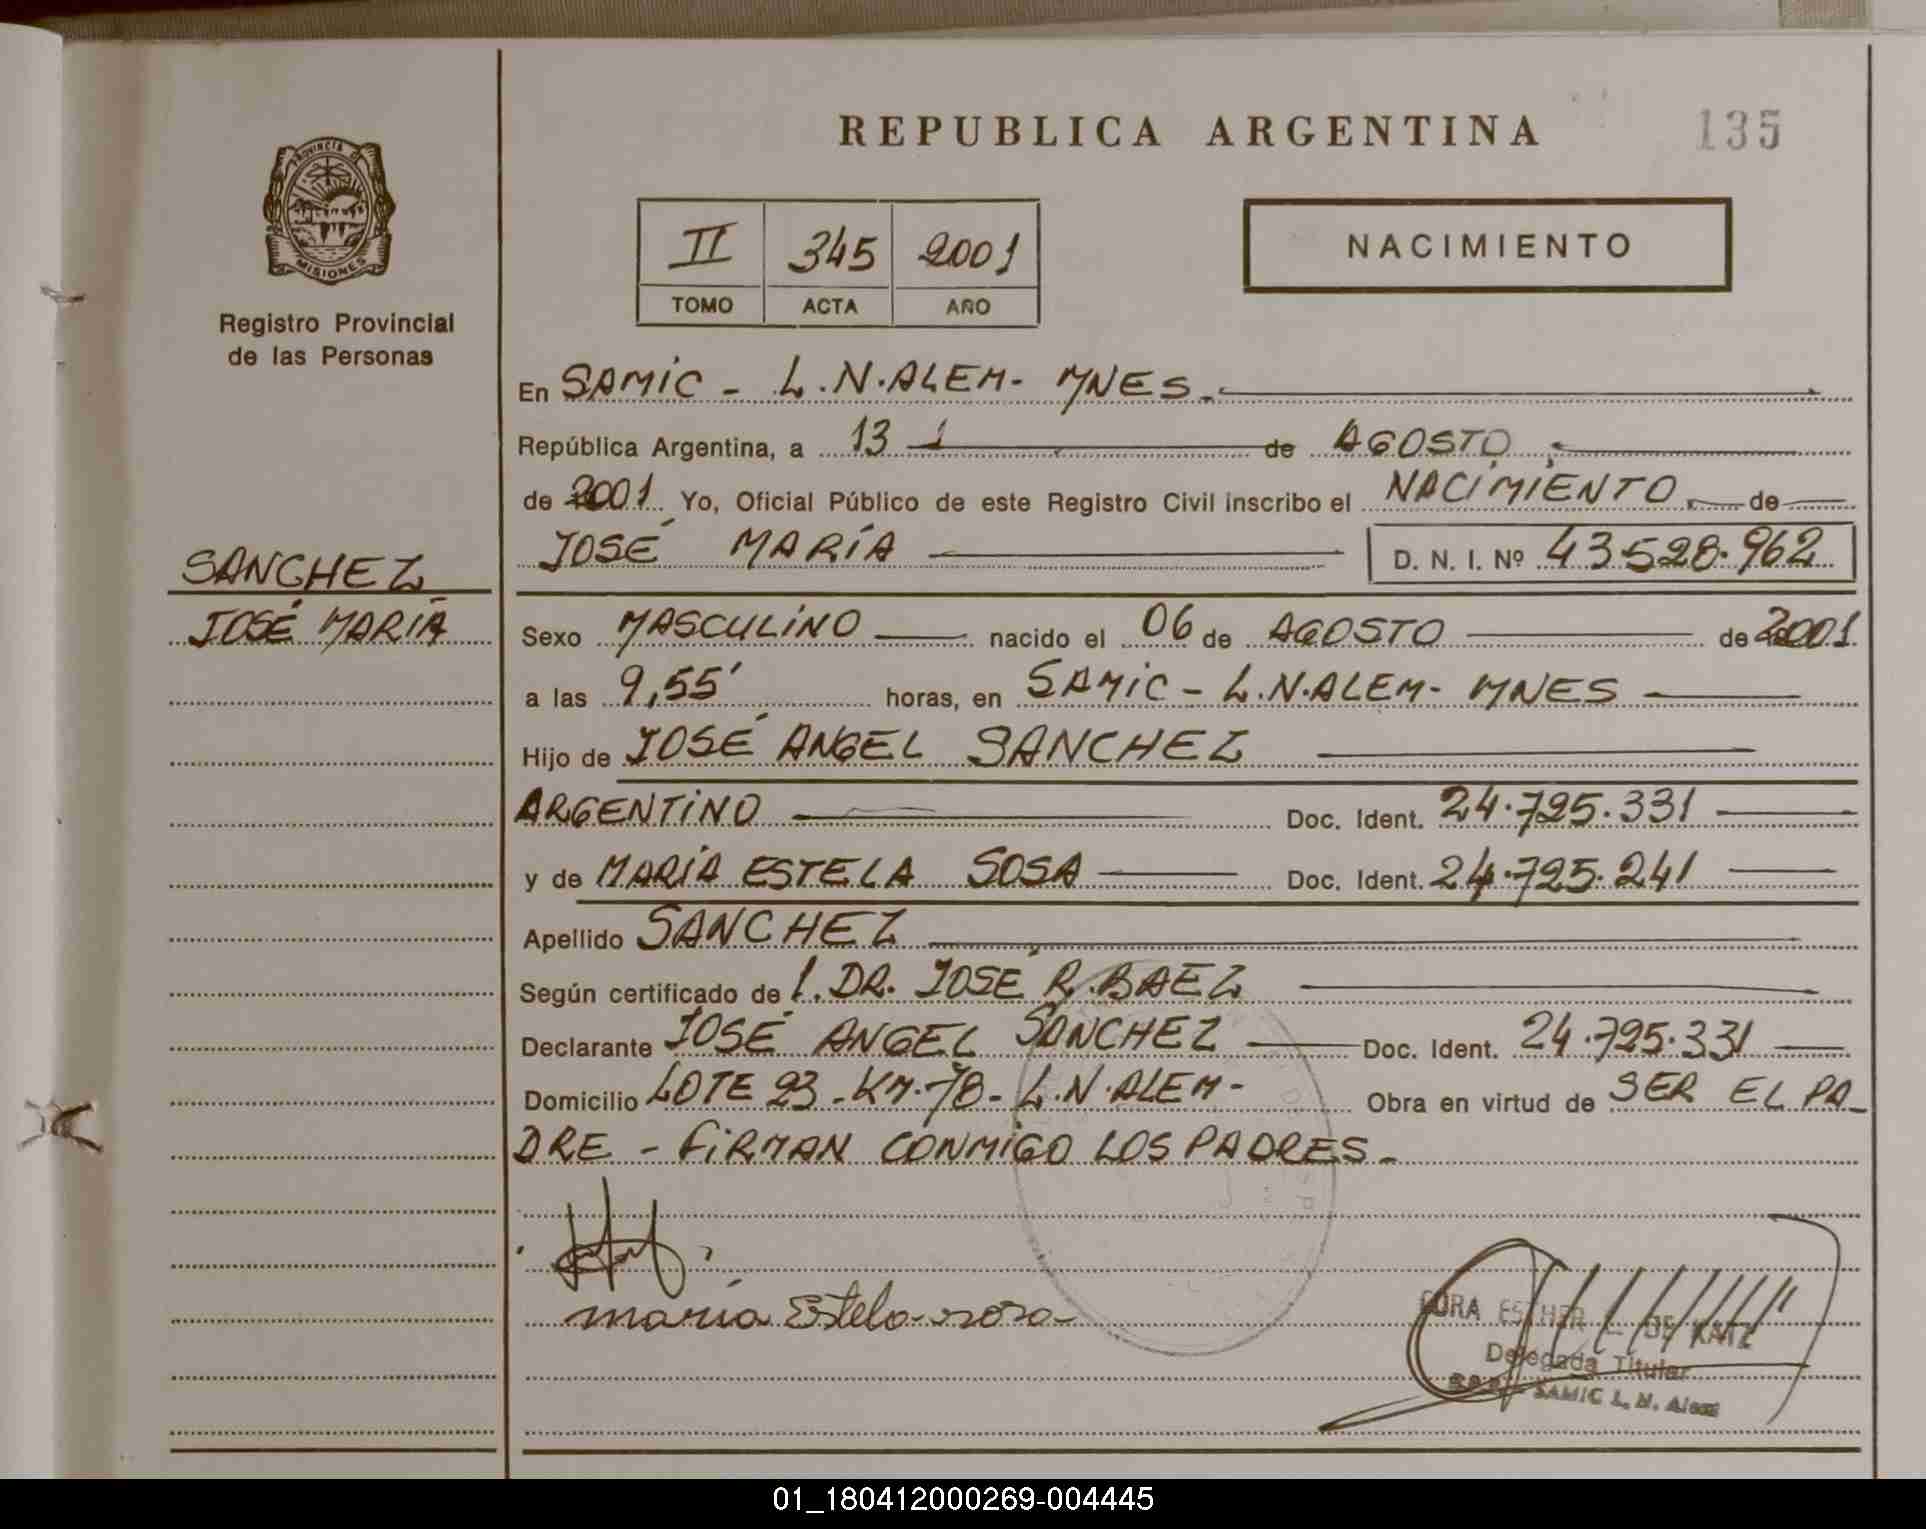 REPUBLICA ARGENTINA
135
PROVINCIA DE
MISIONES
Registro Provincial
de las Personas
II 345 2001
TOMO ACTA AÑO
NACIMIENTO
En SAMIC - L.N.ALEM- MNES.
República Argentina, a 13 de AGOSTO
de 2001 Yo, Oficial Público de este Registro Civil inscribo el NACIMIENTO de
JOSÉ MARÍA D. N. I. Nº 43.528.962
SANCHEZ
JOSÉ MARÍA
Sexo MASCULINO nacido el 06 de AGOSTO de 2001
a las 9,55' horas, en SAMIC - L.N.ALEM- MNES
Hijo de JOSÉ ANGEL SANCHEZ
ARGENTINO Doc. Ident. 24.725.331
y de MARÍA ESTELA SOSA Doc. Ident. 24.725.241
Apellido SANCHEZ
Según certificado de 1. DR. JOSÉ R. BAEZ
Declarante JOSÉ ANGEL SANCHEZ Doc. Ident. 24.725.331
Domicilio LOTE 23 - KM.78 - L.N.ALEM - Obra en virtud de SER EL PA-
DRE - FIRMAN CONMIGO LOS PADRES -
maria Estela sosa
ESTHER DE KATZ
Delegada Titular
SAMIC L. N. Alem
01_180412000269-004445